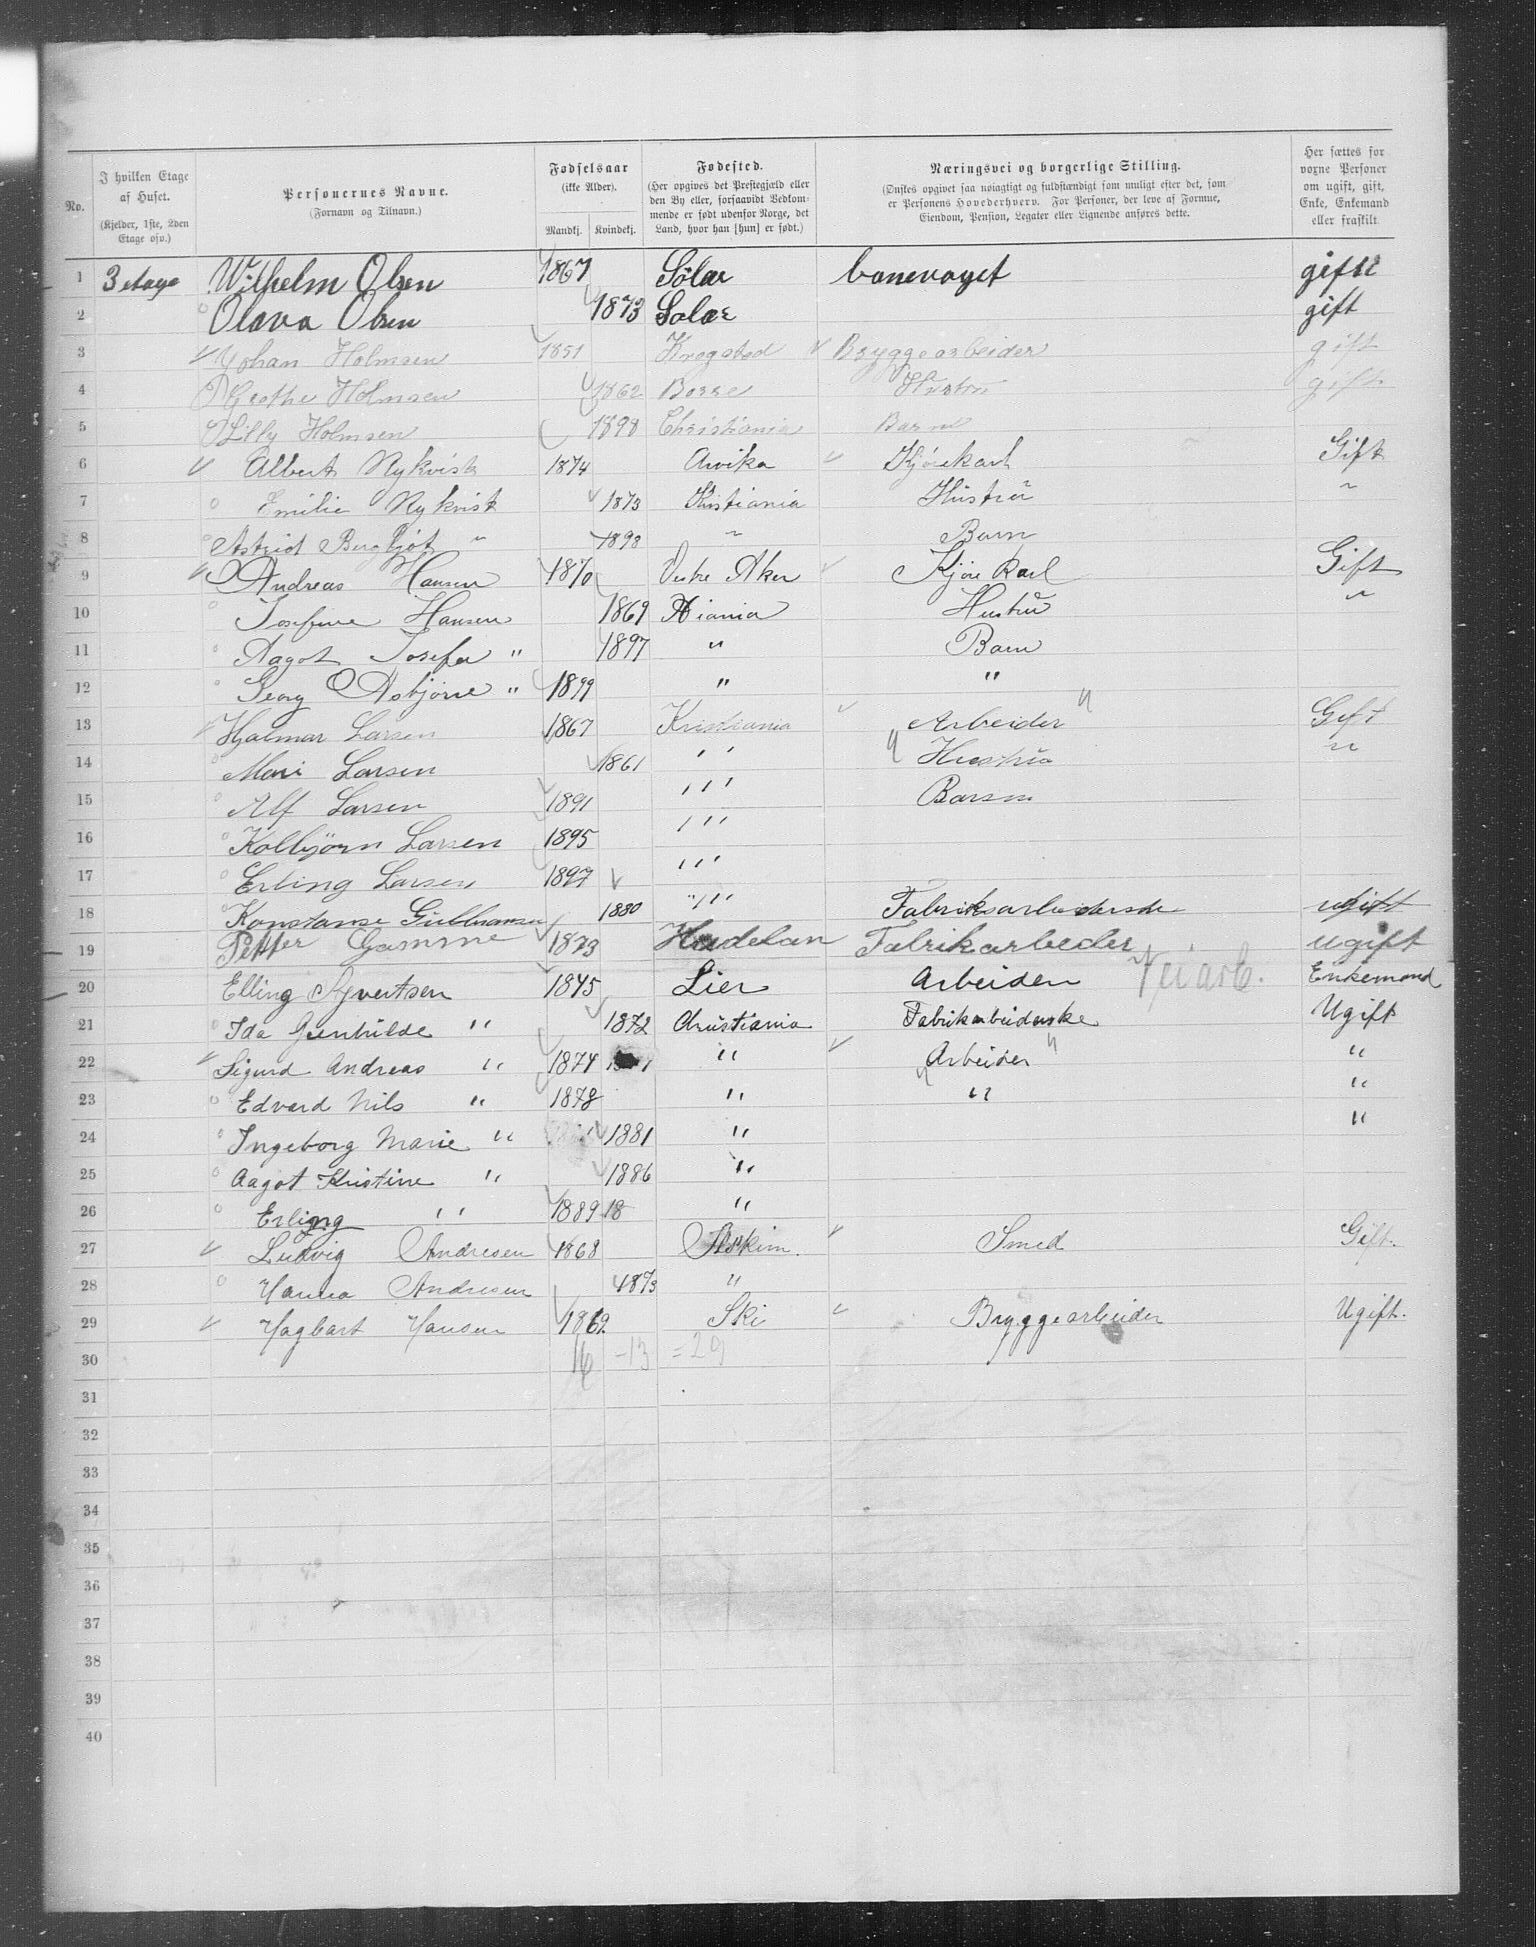 No. | I hvilken Etage af Huset. (Kjelder, 1ste, 2den Etage osv.) | Personernes Navne. (Fornavn og Tilnavn.) | Fødselsaar (ikke Alder). Mandkj. | Kvindekj. | Fødested. (Her opgives det Prestegjæld eller den By eller, forsaavidt Vedkommende er født udenfor Norge, det Land, hvor han [hun] er født.) | Næringsvei og borgerlige Stilling. (Ønskes opgivet saa nøiagtigt og fuldstændigt som muligt efter det, som er Personens Hovederhverv. For Personer, der leve af Formue, Eiendom, Pension, Legater eller Lignende anføres dette.) | Her sættes for voxne Personer om ugift, gift, Enke, Enkemand eller fraskilt.
1 | 3 etage | Wilhelm Olsen | 1867 | | Sölær | banevaget | gifte
2 | | Olava Olsen | | 1873 | Solær | | gift
3 | | Johan Holmsen | 1851 | | Krogstad | Bryggearbeider | gift
4 | | Grethe Holmsen | | 1862 | Borre | Hustru | gift
5 | | Lilly Holmsen | | 1898 | Christiania | Barn
6 | | Albert Nykvist | 1874 | | Arvika | Kjørekarl | Gift
7 | | Emilie Nykvist | | 1873 | Kristiania | Hustru | "
8 | | Astrid Bergljot " | | 1898 | " | Barn
9 | | Andreas Hansen | 1870 | | Vestre Aker | Kjøre Karl | Gift
10 | | Josefine Hansen | | 1869 | Xiania | Hustru | "
11 | | Aagot Josefa " | | 1897 | " | Barn
12 | | Georg Asbjørn " | 1899 | | " | "
13 | | Hjalmar Larsen | 1867 | | Kristiania | Arbeider " | Gift
14 | | Mari Larsen | | 1861 | " | " Hustru | "
15 | | Alf Larsen | 1891 | | " | Barn
16 | | Kolbjörn Larsen | 1895 | | "
17 | | Erling Larsen | 1897 | | "
18 | | Konstanse | | 1880 | " | Fabriksarbeiderske | ugift
19 | | Petter Gamme | 1873 | | Hadelan | Fabrikarbeder | ugift
20 | | Elling Syvertsen | 1845 | | Lier | Arbeider Veiarb. | Enkemand
21 | | Ida Gunhilde " | | 1872 | Christiania | Fabrikarbeiderske | Ugift
22 | | Sigurd Andreas " | 1874 | | " | Arbeider " | "
23 | | Edvard Nils " | 1878 | | " | " | "
24 | | Ingeborg Marie " | | 1881 | " | | "
25 | | Aagot Kristine " | | 1886 | "
26 | | Erling " | 1889 | 18 | "
27 | | Ludvig Andresen | 1868 | | Askim. | Smed | Gift.
28 | | Hanna Andresen | | 1873 | "
29 | | Hagbart Hansen | 1869 | | Ski | Bryggearbeider | Ugift.
30 | | | 16 | -13 | = 29
31
32
33
34
35
36
37
38
39
40